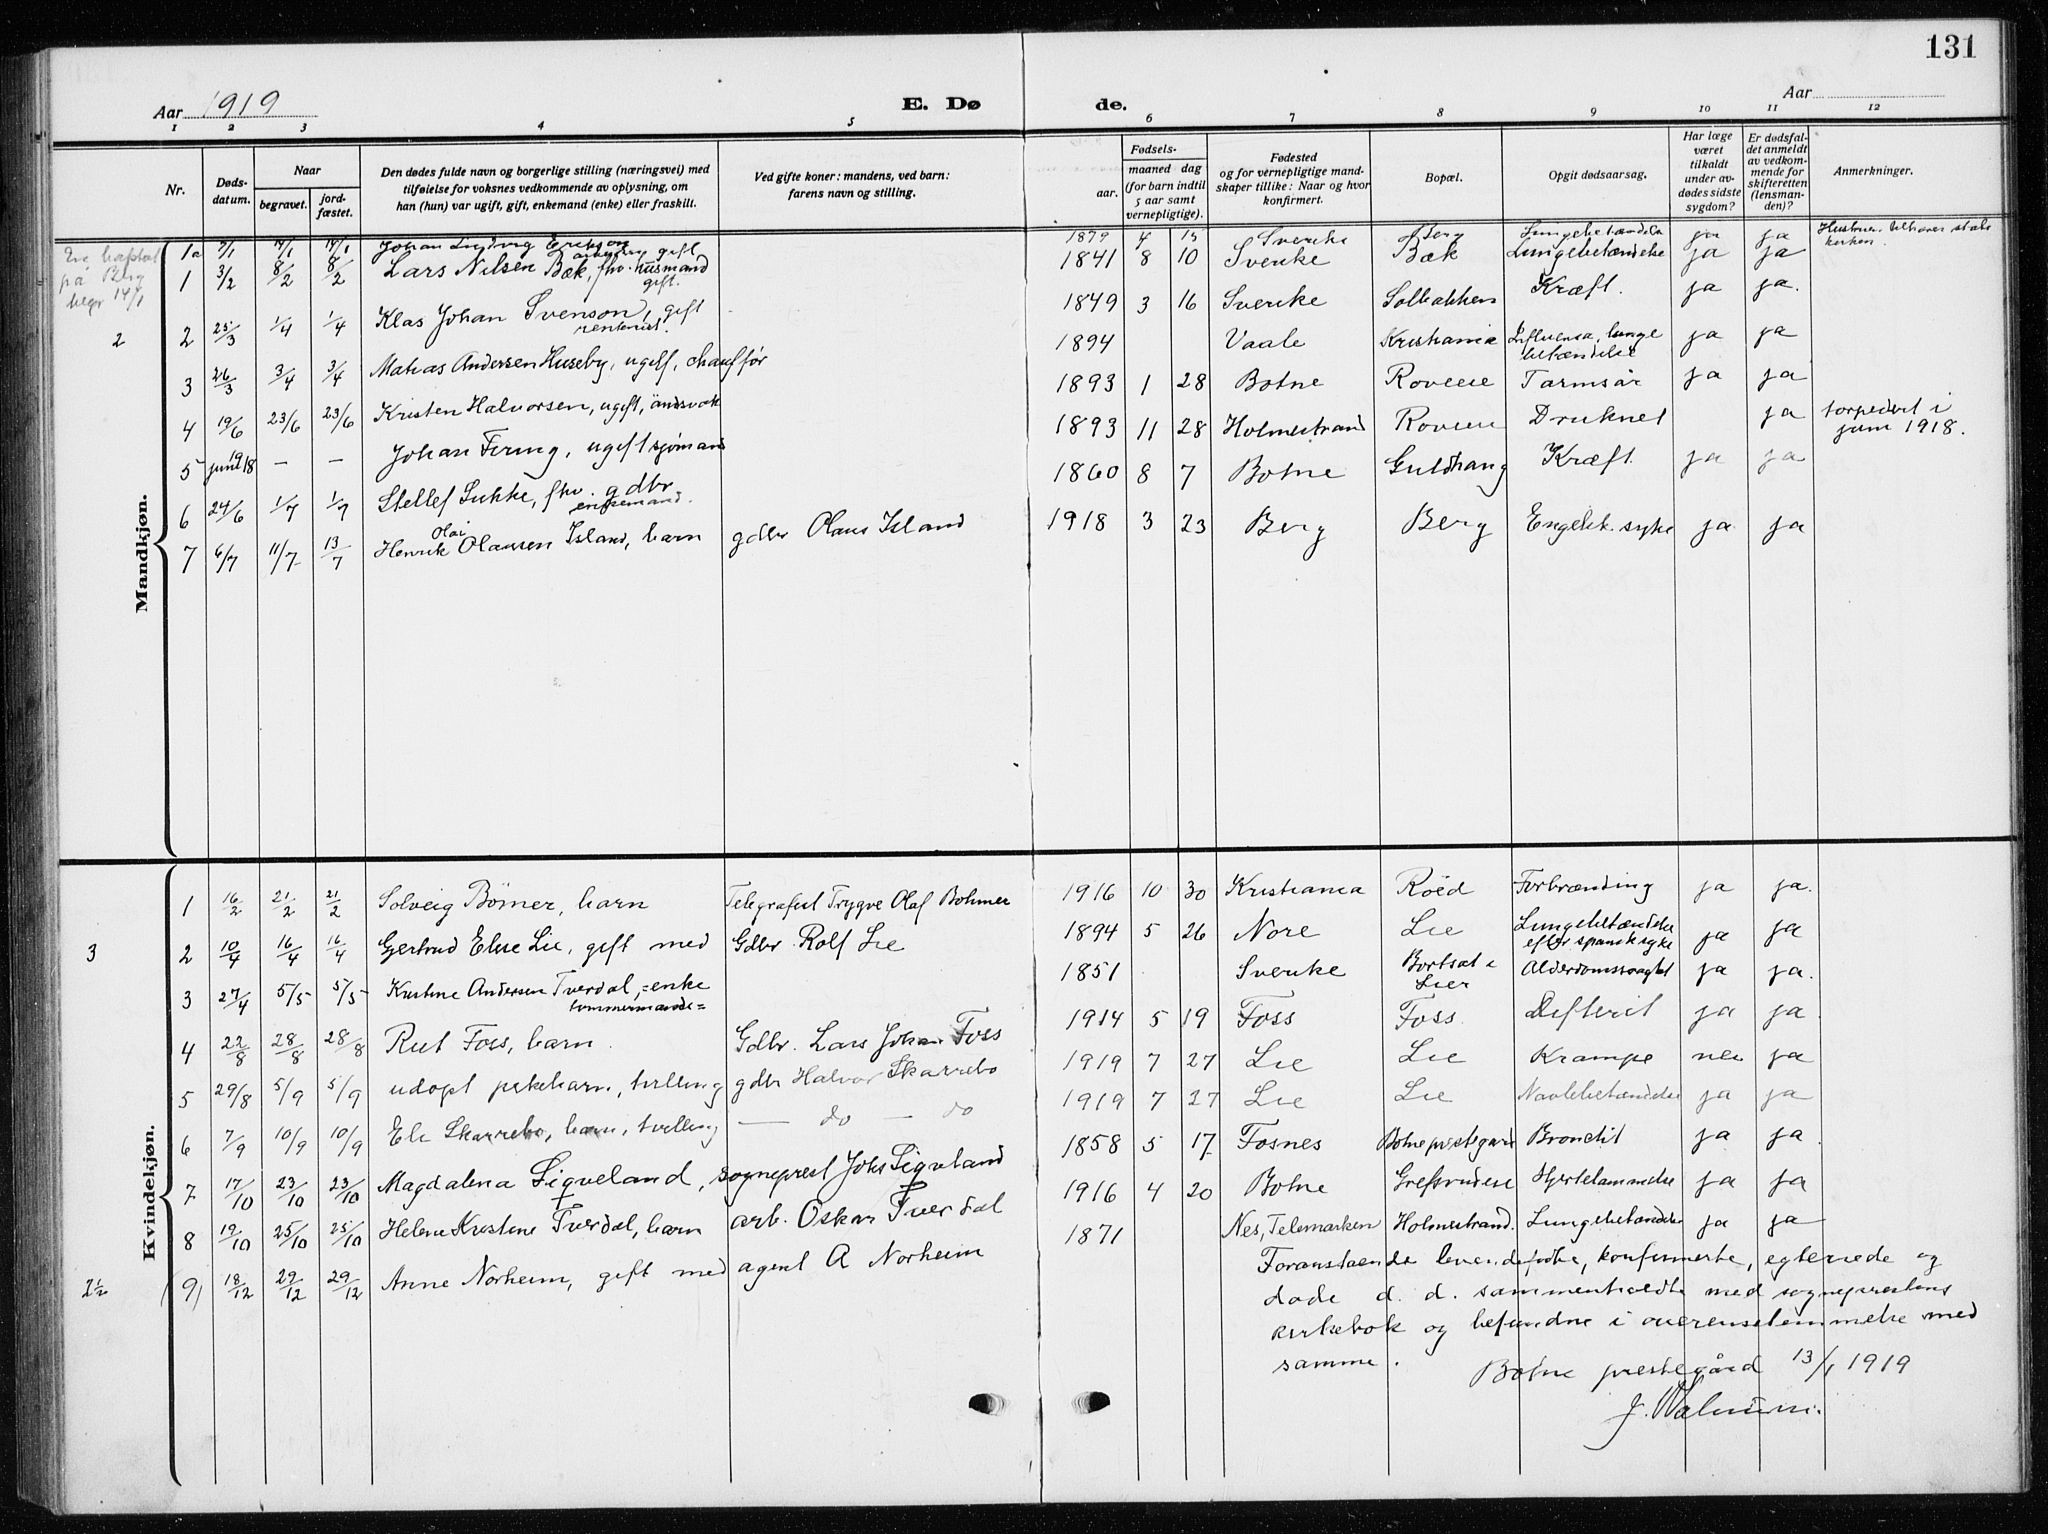 131
Aar 1919
E. Dø
de.
Aar
1 2 3 4 5 6 7 8 9 10 11 12
Nr.
Døds-
datum.
Naar
begravet.
jord-
fæstet.
Den dødes fulde navn og borgerlige stilling (næringsvei) med
tilføielse for voksnes vedkommende av oplysning, om
han (hun) var ugift, gift, enkemand (enke) eller fraskilt.
Ved gifte koner: mandens, ved barn:
farens navn og stilling.
Fødsels-
aar.
maaned dag
(for barn indtil
5 aar samt
vernepligtige).
Fødested
og for vernepligtige mand-
skaper tillike: Naar og hvor
konfirmert.
Bopæl.
Opgit dødsaarsag.
Har læge
været
tilkaldt
under av-
dødes sidste
sygdom?
Er dødsfal-
det anmeldt
av vedkom-
mende for
skifteretten
(lensman-
den)?
Anmerkninger.
Mandkjøn.
på Berg
begr 14/1
1a 7/1 14/1 14/1 Johan Ludvig Erikson arbeider gift 1879 4 Sverike Berg Lungebetændelse ja ja
1 3/2 8/2 8/2 Lars Nilsen Bæk, fhv. husmand gift. 1841 8 10 Sverike Bæk Lungebetændelse ja ja
2
2 25/3 1/4 1/4 Klas Johan Svenson, gift rentenist. 1849 3 16 Sverike Solbakken Kræft. ja ja.
3 26/3 3/4 3/4 Matias Andersen Huseby, ugift, chauffør 1894 Vaale Kristiania Influensa, lunge betændelse ja ja
4 19/6 23/6 23/6 Kristen Halvorsen, ugift, åndsvak 1893 1 28 Botne Roveie Tarmsår ja ja
5 juni 1918 — — Johan Firing, ugift sjømand 1893 11 28 Holmestrand Roveie Druknet ja torpedert i juni 1918.
6 24/6 1/7 1/7 Stellef Sukke, fhv. gdbr enkemand. 1860 8 7 Botne Guldhang Kræft ja ja
7 6/7 11/7 13/7 Henrik Olai Olausen Island, barn gdbr Olaus Island 1918 3 23 Berg Berg Engelsk syke ja ja
Kvindekjøn.
1 16/2 21/2 21/2 Solveig Bømer, barn Telegrafist Trygve Olaf Bohmer 1916 10 30 Kristiania Røed Forbrænding ja ja.
3
2 10/4 16/4 16/4 Gjertrud Elise Lie, gift med Gdbr. Rolf Lie 1894 5 26 Nore Lie Lungebetændelse efter spansk syke ja ja
3 27/4 5/5 5/5 Kristine Andersen Tverdal, =enke tømmermands= 1851 Sverike Bortsat i Lier Alderdomssvaghet ja ja.
4 22/8 28/8 28/8 Rut Foss, barn. Gdbr. Lars Johan Foss 1914 5 19 Foss Foss Difterit ja ja
5 29/8 5/9 5/9 udøpt pikebarn, tvilling gdbr Halvor Skarrebo 1919 7 27 Lie Lie Krampe nei ja
6 7/9 10/9 10/9 Eli Skarrebo, barn, tvilling — do — do 1919 7 27 Lie Lie Navlebetændelse ja ja
7 17/10 23/10 23/10 Magdalena Sigveland, sogneprest Johs Sigveland 1858 5 17 Fosnes Botne prestegård Bronchit ja ja
8 19/10 25/10 25/10 Helene Kristine Tverdal, barn arb. Oskar Tverdal 1916 4 20 Botne Grefsrudeie Hjertelammelse ja ja
2½
(9) 18/12 29/12 29/12 Anne Norheim, gift med agent A Norheim 1871 Nes, Telemarken Holmestrand. Lungebetændelse ja ja
Foranstaende levendefødte, konfirmerte, egteviede og
døde d. d. sammenholdte med sogneprestens
kirkebok og befundne i overensstemmelse med
samme.
Botne prestegård 13/1 1919